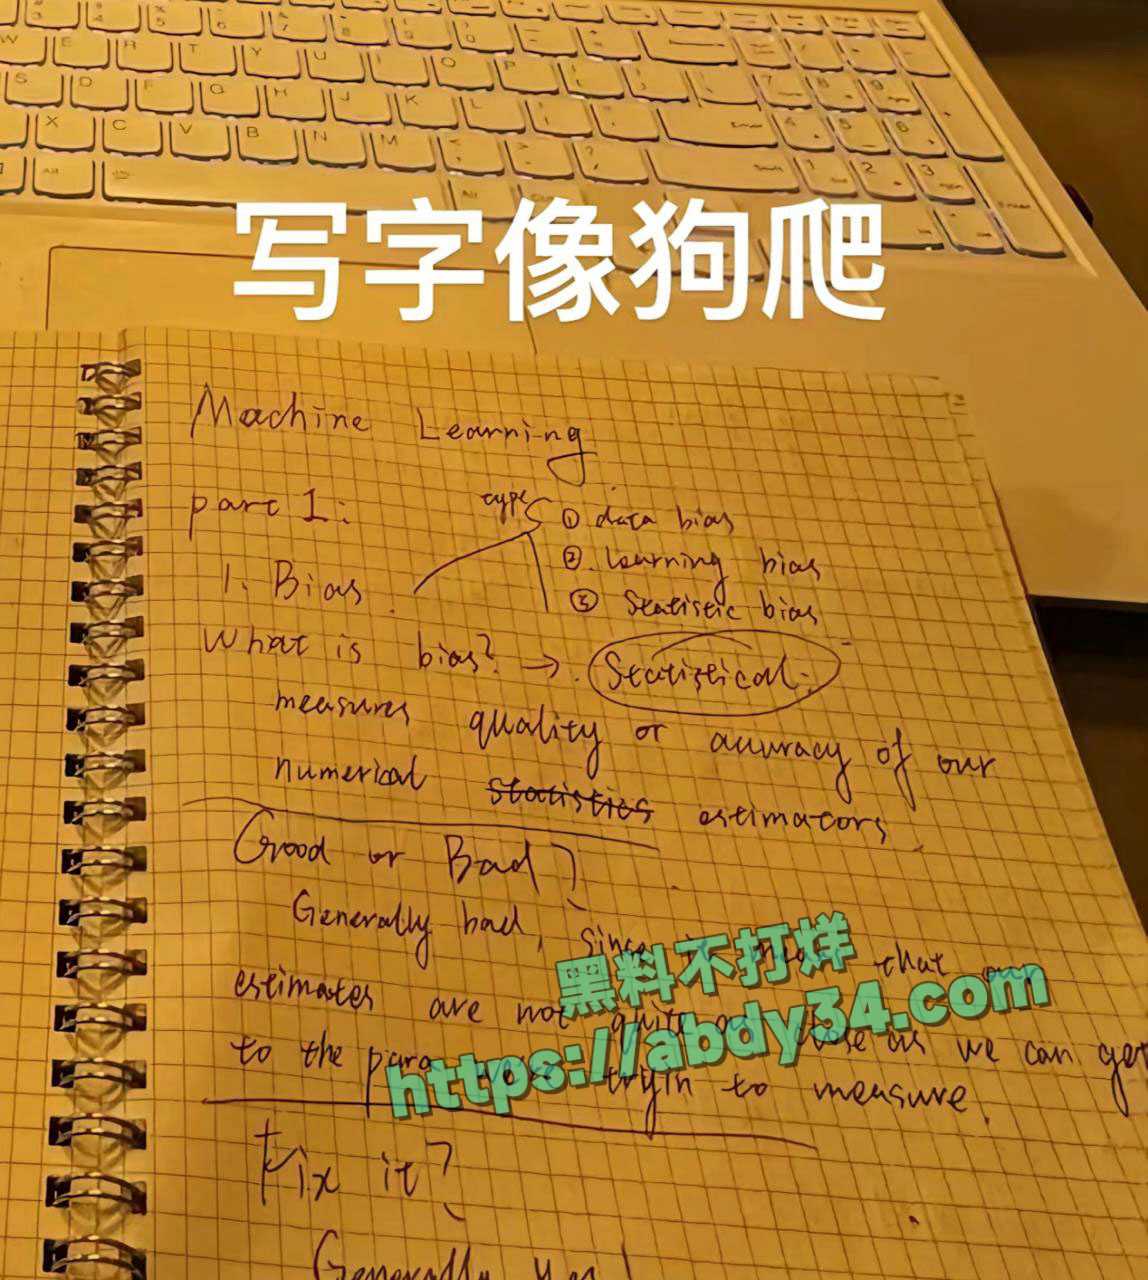 写字像狗爬
Machine Learning
part 1:
type
① data bias
②. Learning bias
③ Statistic bias
1. Bias.
What is bias? → Statistical:
measures quality or accuracy of our
numerical statistics estimators.
Good or Bad?
Generally bad, since it that our
estimates are not quite as close as we can get
to the para tryin to measure.
黑料不打烊
https://abdy34.com
Fix it?
Generally yes!